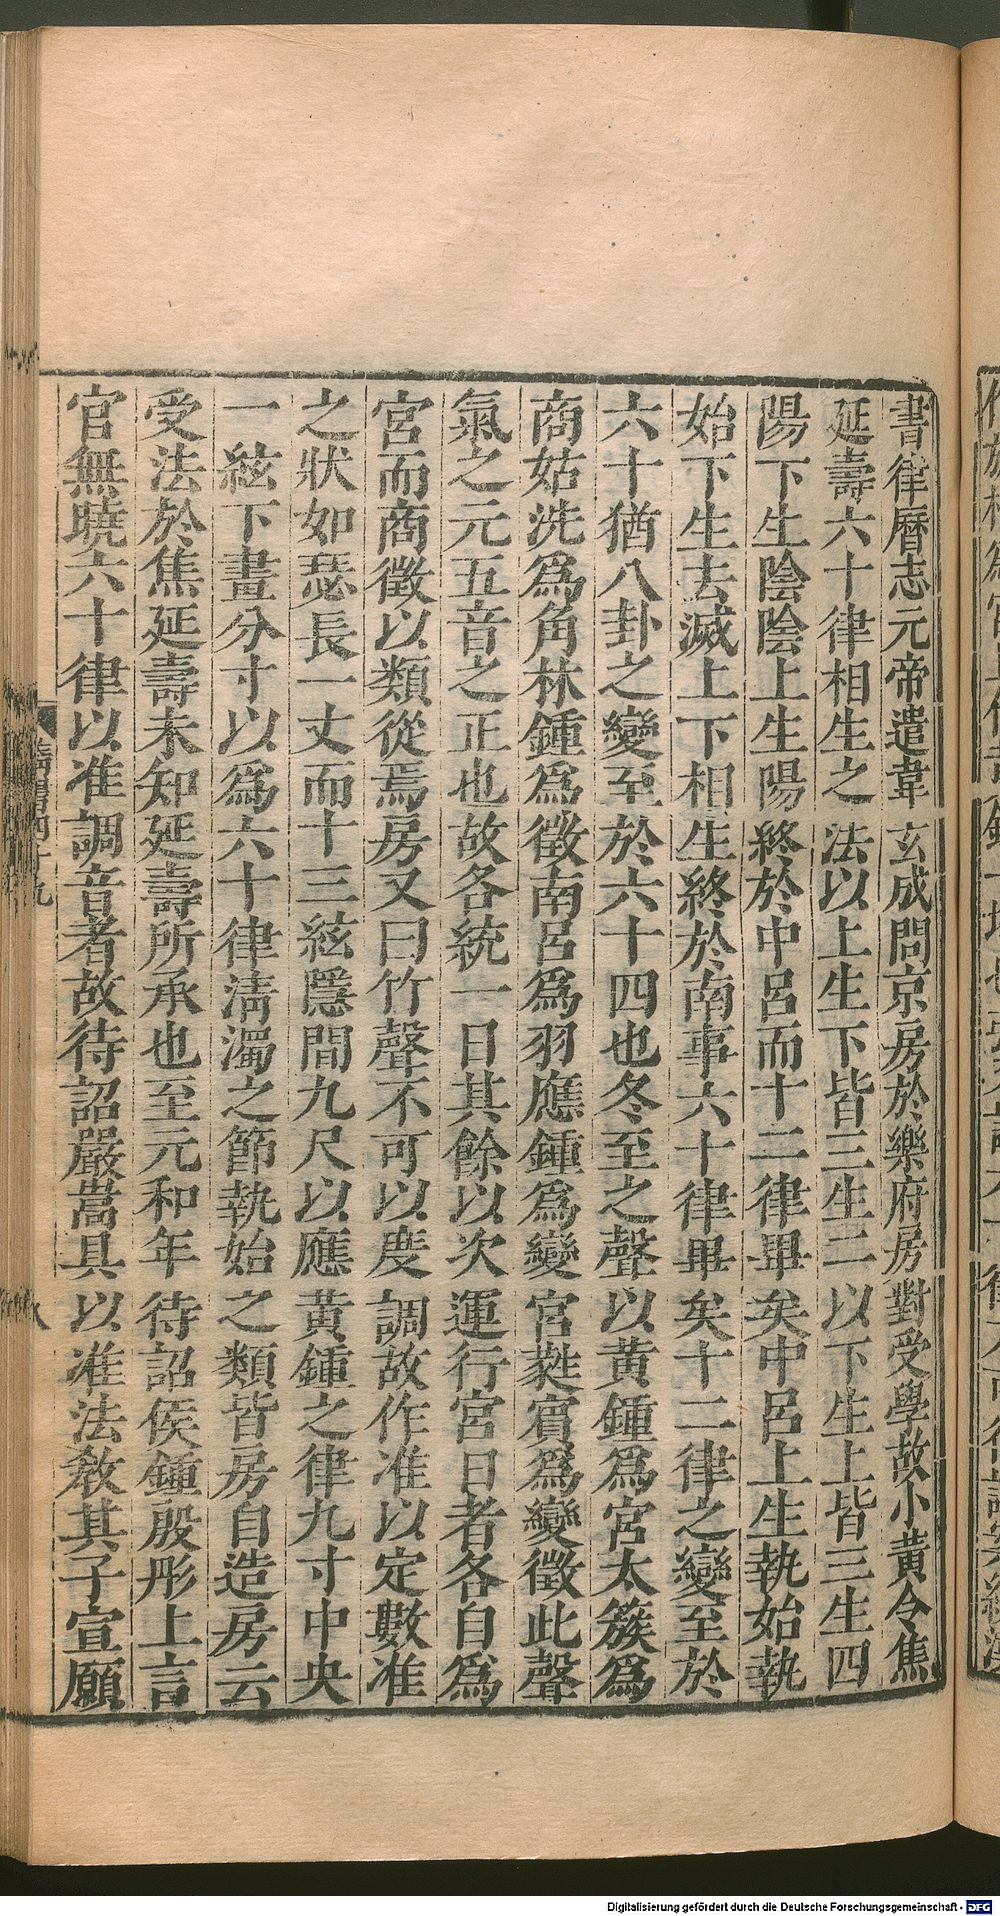 書律曆志元帝遣韋玄成問京房於樂府房對受學故小黄令焦
延壽六十律相生之法以上生下皆三生二以下生上皆三生四
陽下生陰陰上生陽終於中呂而十二律畢矣中呂上生執始執
始下生去滅上下相生終於南事六十律畢矣十二律之變至於
六十猶八卦之變至於六十四也冬至之聲以黄鍾爲宮太簇爲
商姑洗爲角林鍾爲徵南呂爲羽應鍾爲變宮蕤賓爲變徵此聲
氣之元五音之正也故各統一日其餘以次運行宮日者各自爲
宮而商徵以類從焉房又曰竹聲不可以度調故作准以定數准
之狀如瑟長一丈而十三絃隱間九尺以應黄鍾之律九寸中央
一絃下畫分寸以爲六十律淸濁之節執始之類皆房自造房云
受法於焦延壽未知延壽所承也至元和年待詔侯鍾殷彤上言
官無曉六十律以准調音者故待詔嚴嵩具以准法敎其子宣願
Digitalisierung gefördert durch die Deutsche Forschungsgemeinschaft - DFG